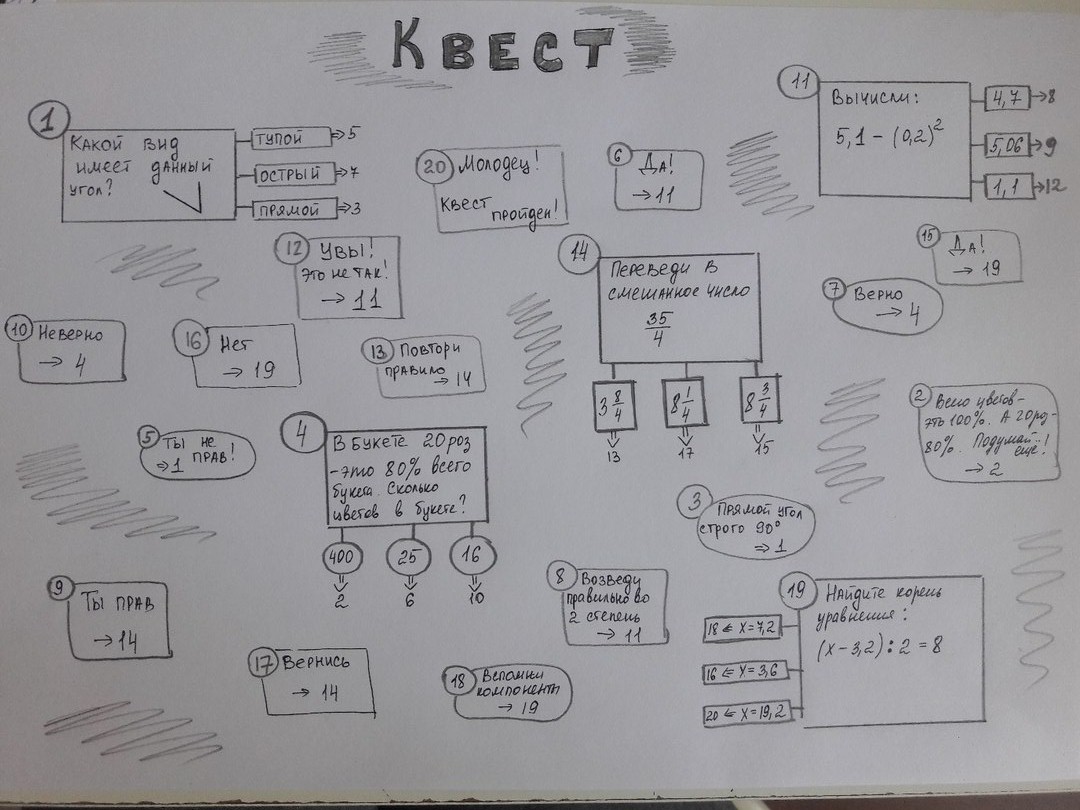 Квест
1
Какой вид
имеет данный
угол?
тупой ⇒ 5
острый ⇒ 7
прямой ⇒ 3
20 Молодец!
Квест
пройден!
6 Да!
→ 11
11
Вычисли:
5,1 - (0,2)²
4,7 → 8
5,06 → 9
1,1 → 12
12 Увы!
это не так!
→ 11
14
Переведи в
смешанное число
35/4
3 8/4
8 1/4
8 3/4
⇒ 13
⇒ 17
⇒ 15
15 Да!
→ 19
7 Верно
→ 4
10 Неверно
→ 4
16 Нет
→ 19
13 Повтори
правило
→ 14
2 Всего цветов -
это 100%. А 20 роз -
80%. Подумай
ещё!
→ 2
5 Ты не
прав!
⇒ 1
4
В букете 20 роз
- это 80% всего
букета. Сколько
цветов в букете?
400
25
16
⇒ 2
⇒ 6
⇒ 10
3
Прямой угол
строго 90°
⇒ 1
9
Ты прав
→ 14
8 Возведи
правильно во
2 степень
→ 11
19 Найдите корень
уравнения:
(x - 3,2) : 2 = 8
18 ⇐ x = 7,2
16 ⇐ x = 3,6
20 ⇐ x = 19,2
17 Вернись
→ 14
18 Вспомни
компоненты
→ 19